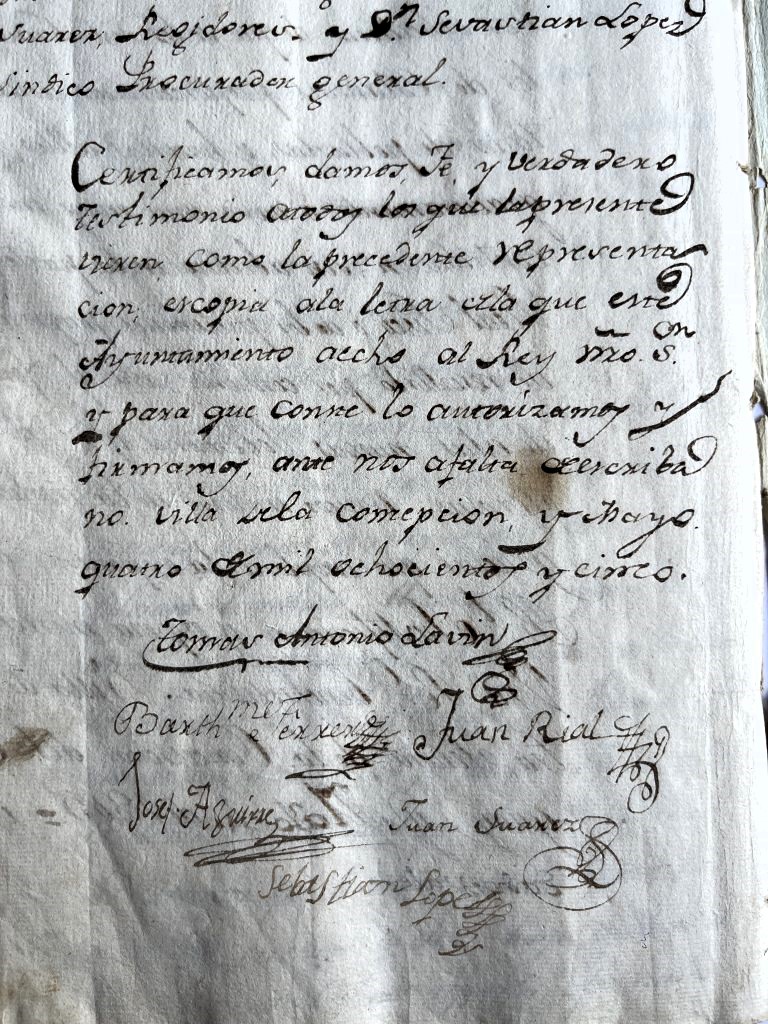 Suarez, Regidores y Dn. Sevastian Lopez
Sindico Procurador general.
Certificamos, damos, Fe, y verdadero
testimonio atodos los que lapresente
vieren como la precedente representa
cion, escopia ala letra dela que este
Ayuntamiento aecho al Rey nro. Sor.
y para que conste lo autorizamos y
firmamos, ante nos afalta deescriba
no. Villa dela Comcepcion, y Mayo.
quatro demil ochocientos y cinco.
Tomas Antonio Lavin
Barthme Ferrer Juan Rial
Josef Aguirre Juan Suarez
Sebastian Lopez